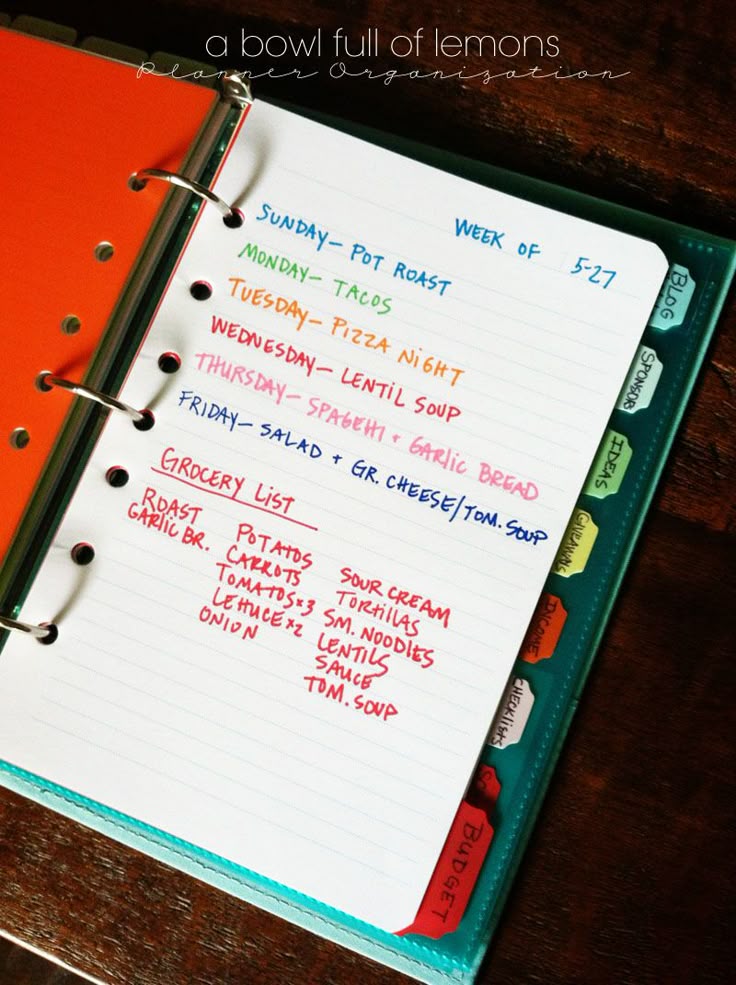 a bowl full of lemons
Planner Organization
WEEK OF 5-27
SUNDAY– POT ROAST
MONDAY– TACOS
TUESDAY– PIZZA NIGHT
WEDNESDAY– LENTIL SOUP
THURSDAY– SPAGEHTI + GARLIC BREAD
FRIDAY– SALAD + GR. CHEESE/TOM. SOUP
GROCERY LIST
ROAST
GARLIC BR.
POTATOS
CARROTS
TOMATOS x3
LETTUCE x2
ONION
SOUR CREAM
TORTILLAS
SM. NOODLES
LENTILS
SAUCE
TOM. SOUP
BLOG
SPONSOR
IDEAS
GIVEAWAYS
INCOME
CHECKLISTS
BUDGET